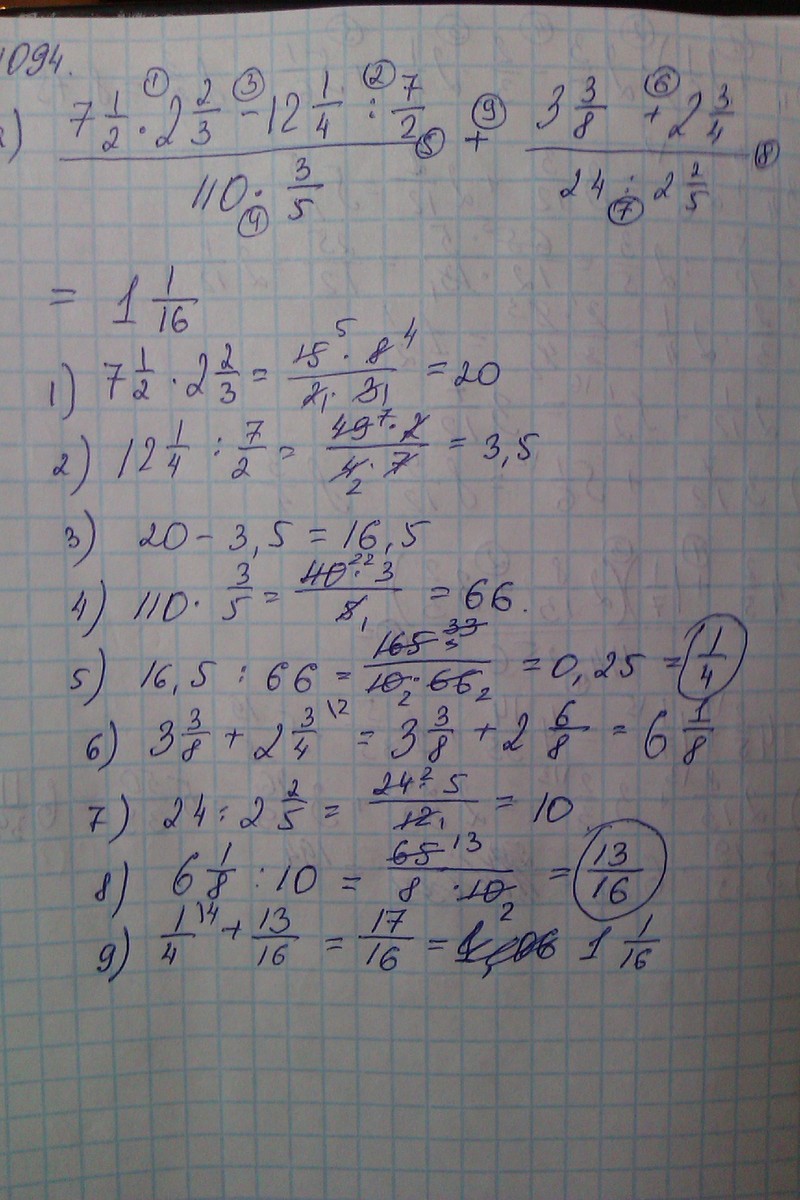 1094.
а) (7 1/2 · 2 2/3 - 12 1/4 : 7/2) / (110 · 3/5) + (3 3/8 + 2 3/4) / (24 : 2 2/5)
① ③ ② ⑨ ⑥ ⑤ ⑧ ④ ⑦
= 1 1/16
1) 7 1/2 · 2 2/3 = (15 5 · 8 4) / (2 1 · 3 1) = 20
2) 12 1/4 : 7/2 = (49 7 · 2) / (4 2 · 7) = 3,5
3) 20 - 3,5 = 16,5
4) 110 · 3/5 = (110 22 · 3) / (5 1) = 66.
5) 16,5 : 66 = (165 33) / (10 2 · 66 2) = 0,25 = 1/4
6) 3 3/8 + 2 3/4 \2 = 3 3/8 + 2 6/8 = 6 1/8
7) 24 : 2 2/5 = (24 2 · 5) / (12 1) = 10
8) 6 1/8 : 10 = (65 13) / (8 · 10 2) = 13/16
9) 1/4 \4 + 13/16 = 17/16 = 1 1/16